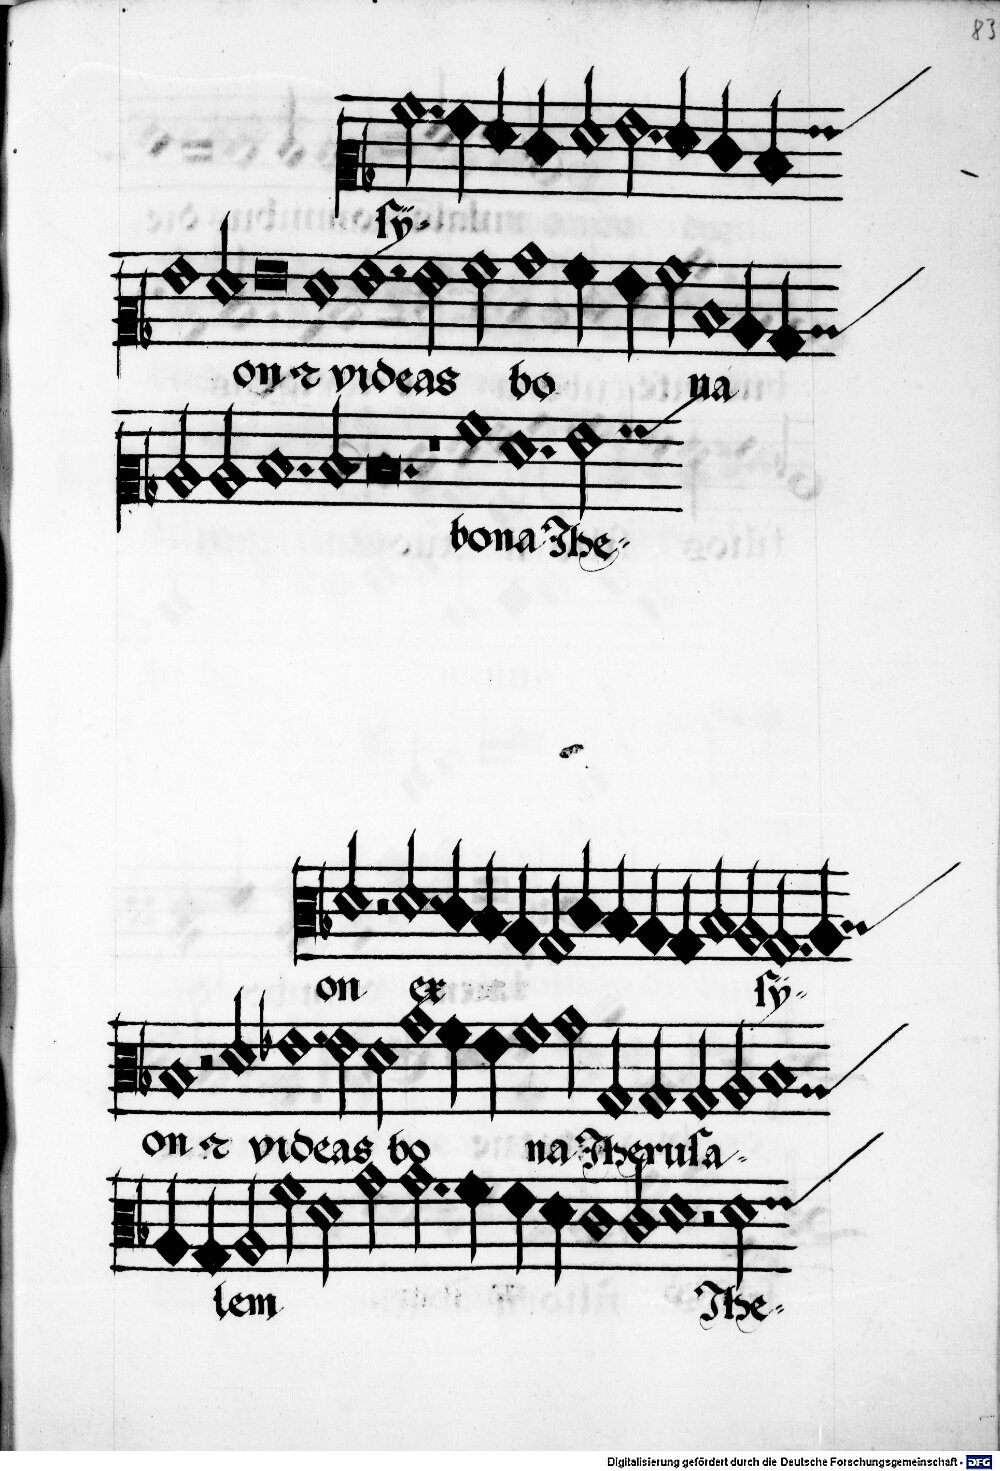 83
sÿ-
on ⁊ videas bo na
bona Jhe-
on ex sÿ-
on ⁊ videas bo na Jherusa-
lem Jhe-
Digitalisierung gefördert durch die Deutsche Forschungsgemeinschaft - DFG